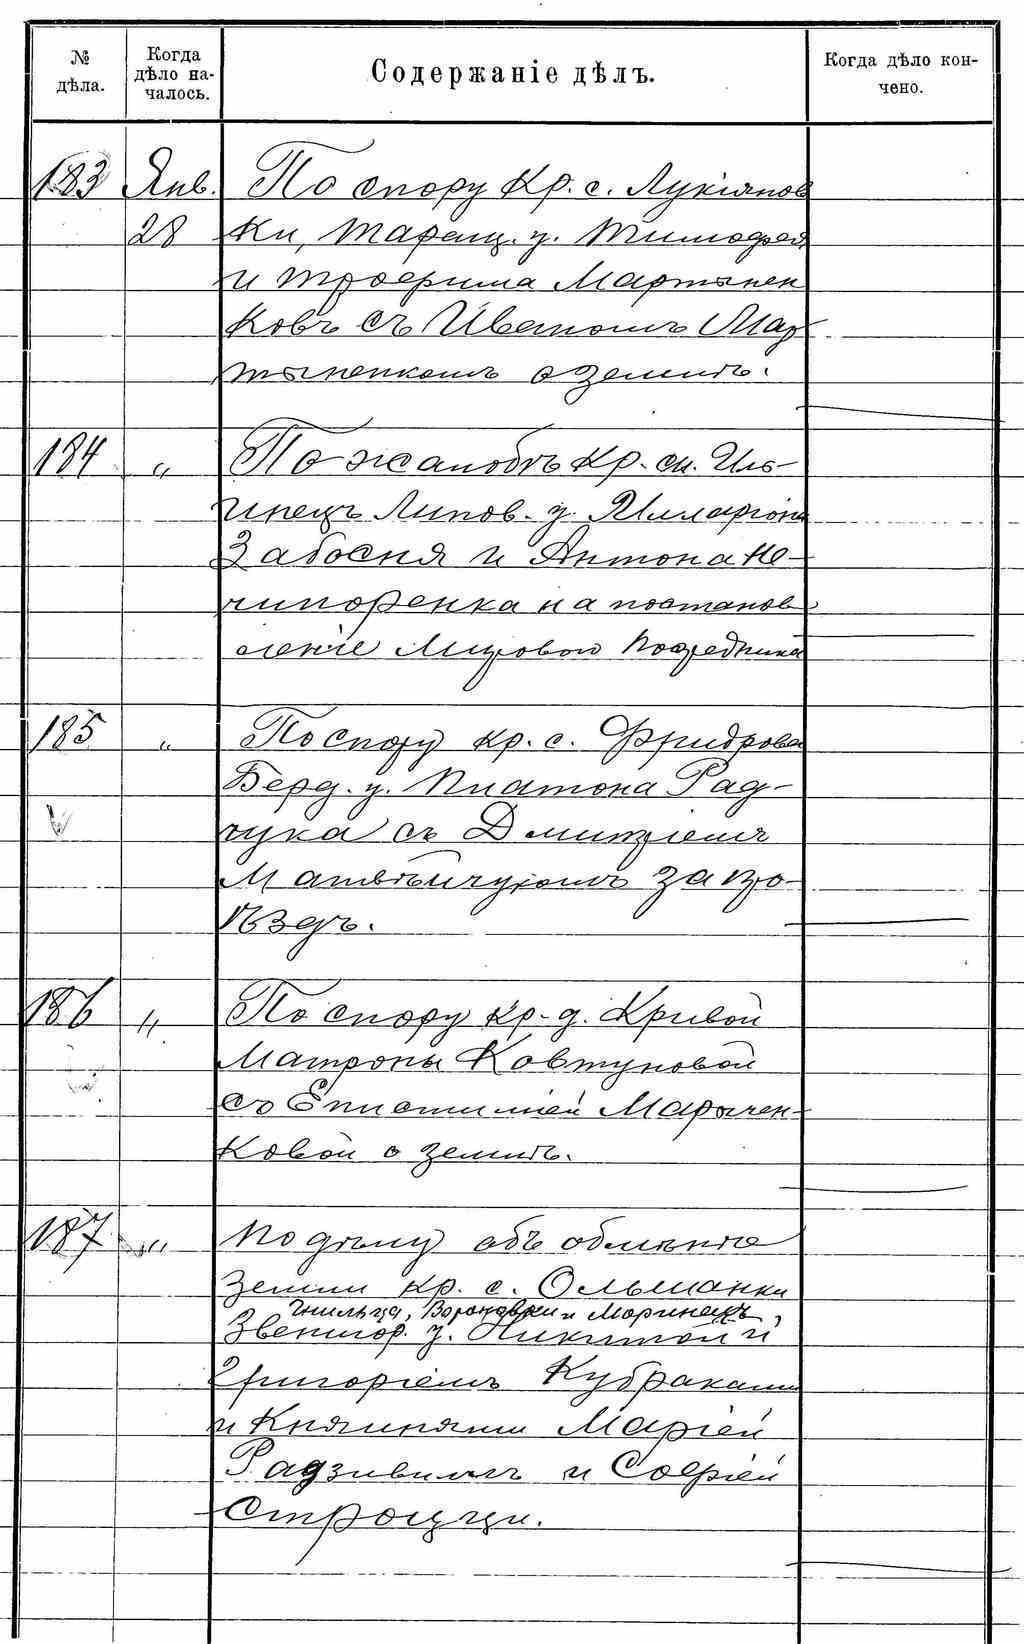 № дѣла.
Когда дѣло началось.
Содержаніе дѣлъ.
Когда дѣло кончено.
183 Янв. По спору кр. с. Лукіянов
28 ки, Таращ. у. Тимофея
и Трофима Мартынен
ковъ съ Иваномъ Мар
тыненкомъ о землѣ.
184 „ По жалобѣ кр. м. Иль-
инецъ Липов. у. Илларіона
Забосня и Антона Не-
чипоренка на постанов
леніе Мирового Посредника
185 „ По спору кр. с. Фридрова
Берд. у. Платона Рад-
чука съ Дмитріемъ
Матвѣйчукомъ за про-
ѣздъ.
186 „ По спору кр. д. Кривой
Матроны Ковтуновой
съ Епистиміей Марычен-
ковой о землѣ.
187 „ По дѣлу объ обмѣнѣ
земли кр. с. Ольшанки
Гнильца, Вороновки и Моринецъ,
Звенигор. у. Никитой и
Григоріемъ Кубраками
и Княгинями Маріей
Радзивилъ и Софіей
Строцци.